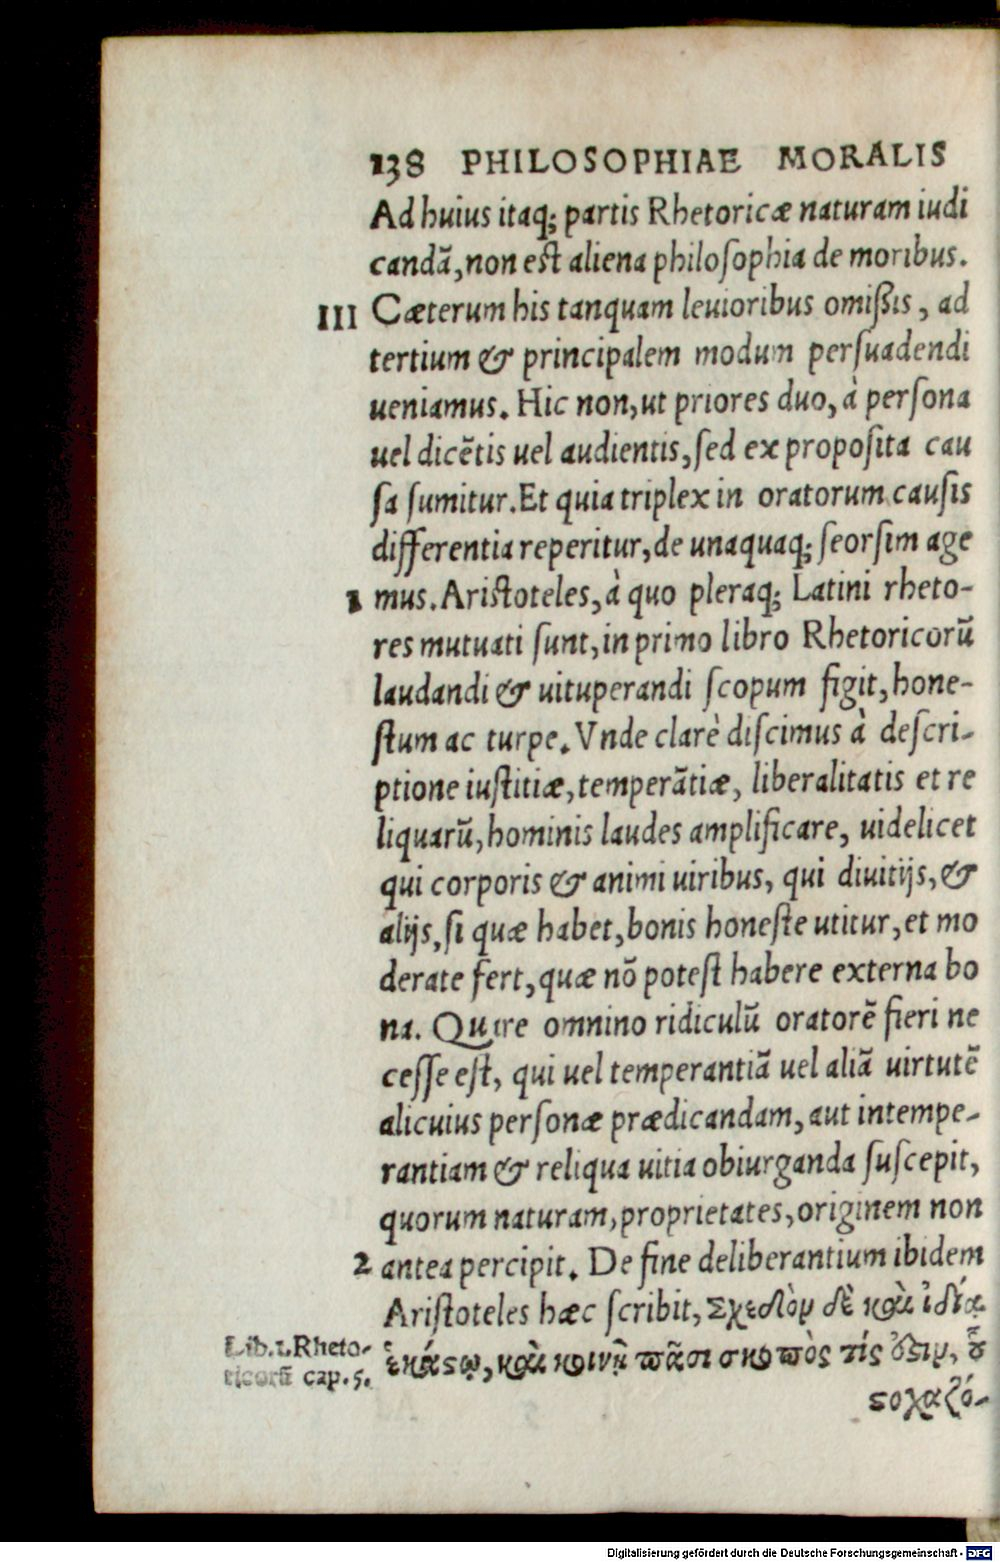 138 PHILOSOPHIAE MORALIS
Ad huius itaq; partis Rhetoricæ naturam iudi
candã, non est aliena philosophia de moribus.
III Cæterum his tanquam leuioribus omißis, ad
tertium & principalem modum persuadendi
ueniamus. Hic non, ut priores duo, à persona
uel dicẽtis uel audientis, sed ex proposita cau
sa sumitur. Et quia triplex in oratorum causis
differentia reperitur, de unaquaq; seorsim age
1 mus. Aristoteles, à quo pleraq; Latini rheto-
res mutuati sunt, in primo libro Rhetoricorũ
laudandi & uituperandi scopum figit, hone-
stum ac turpe. Vnde clarè discimus à descri-
ptione iustitiæ, temperãtiæ, liberalitatis et re
liquarũ, hominis laudes amplificare, uidelicet
qui corporis & animi uiribus, qui diuitijs, &
alijs, si quæ habet, bonis honeste utitur, et mo
derate fert, quæ nõ potest habere externa bo
na. Quare omnino ridiculũ oratorẽ fieri ne
cesse est, qui uel temperantiã uel aliã uirtutẽ
alicuius personæ prædicandam, aut intempe-
rantiam & reliqua uitia obiurganda suscepit,
quorum naturam, proprietates, originem non
2 antea percipit. De fine deliberantium ibidem
Aristoteles hæc scribit, Σχεδὸν δὲ καὶ ἰδίᾳ
Lib. 1. Rheto-
ricorũ cap. 5.
ἑκάστῳ, καὶ κοινῇ πᾶσι σκοπὸς τίς ὅστιν, οὗ
στοχαζό-
Digitalisierung gefördert durch die Deutsche Forschungsgemeinschaft - DFG